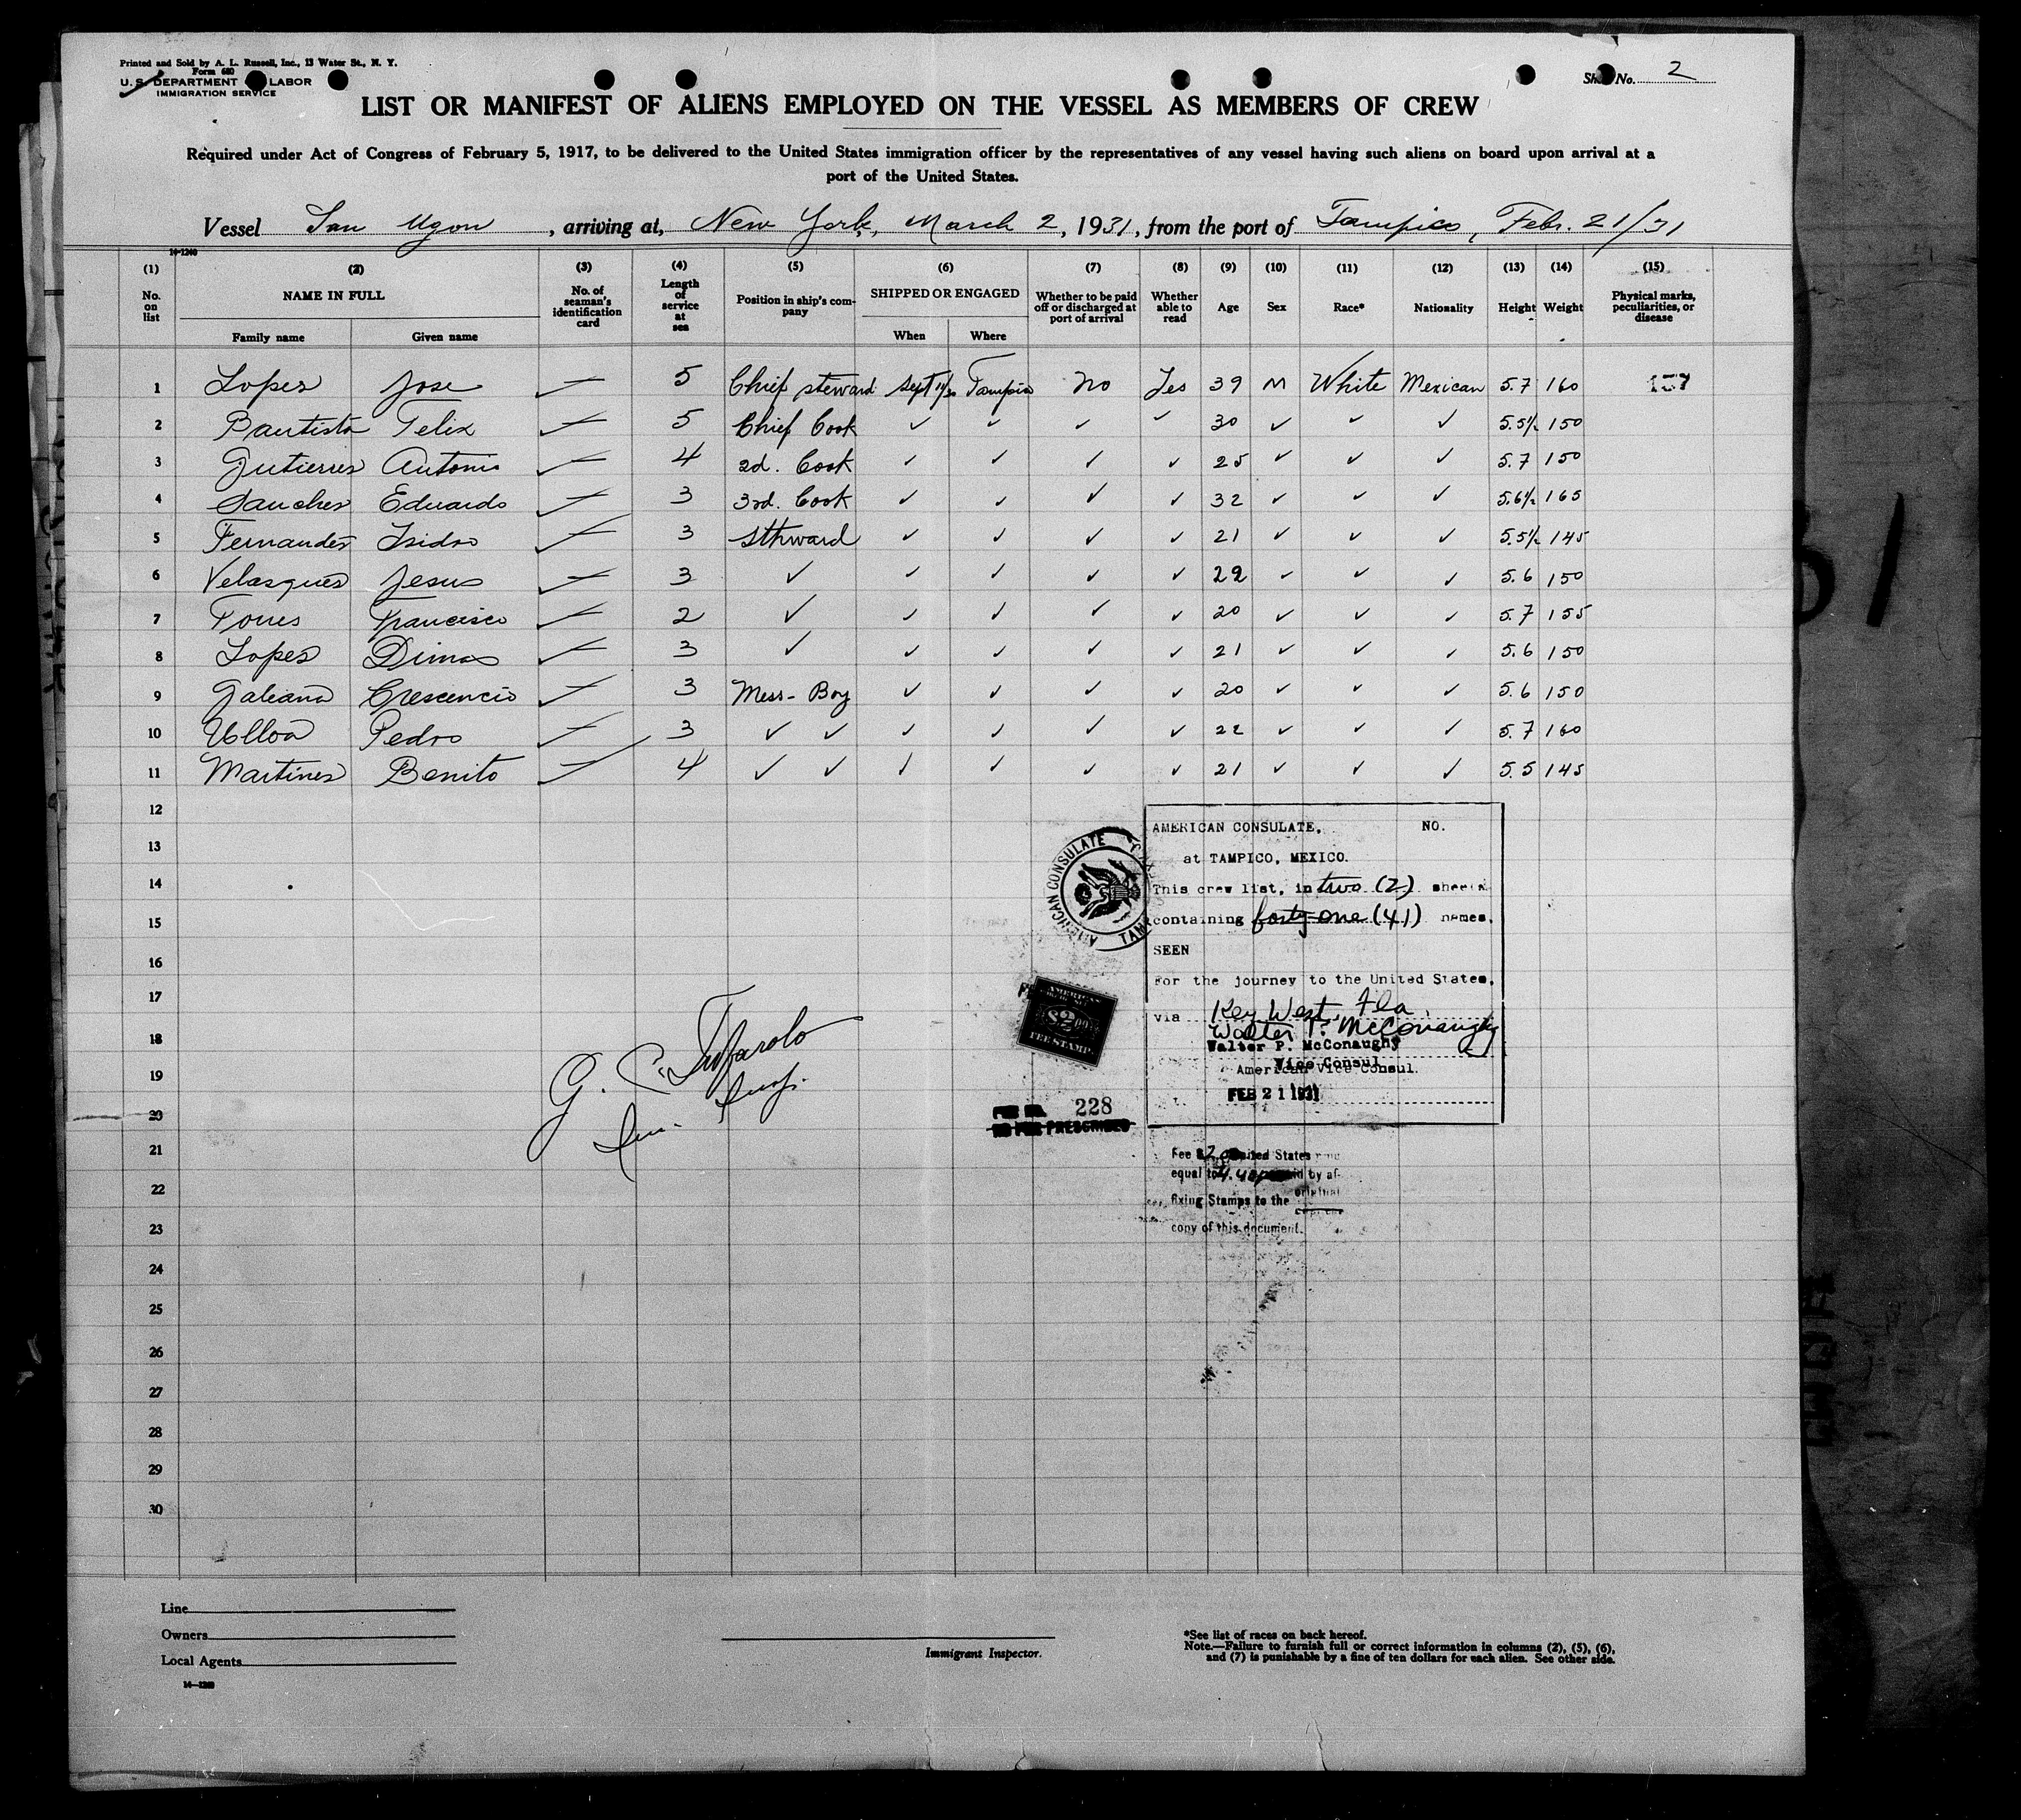 Printed and Sold by A. L. Russell, Inc., 13 Water St., N. Y.
Form 680
U. S. DEPARTMENT LABOR
IMMIGRATION SERVICE
No. 2
LIST OR MANIFEST OF ALIENS EMPLOYED ON THE VESSEL AS MEMBERS OF CREW
Required under Act of Congress of February 5, 1917, to be delivered to the United States immigration officer by the representatives of any vessel having such aliens on board upon arrival at a
port of the United States.
Vessel San Ugon, arriving at, New York, March 2, 1931, from the port of Tampico, Febr. 21/31
14-1240
(1) (2) (3) (4) (5) (6) (7) (8) (9) (10) (11) (12) (13) (14) (15)
No. on list NAME IN FULL No. of seaman's identification card Length of service at sea Position in ship's company SHIPPED OR ENGAGED Whether to be paid off or discharged at port of arrival Whether able to read Age Sex Race* Nationality Height Weight Physical marks, peculiarities, or disease
Family name Given name When Where
1 Lopes Jose 5 Chief steward Sept 11/30 Tampico No Yes 39 M White Mexican 5.7 160 157
2 Bautista Felix ✓ 5 Chief Cook ✓ ✓ ✓ ✓ 30 ✓ ✓ ✓ 5.5½ 150
3 Gutierres Antonio ✓ 4 2d. Cook ✓ ✓ ✓ ✓ 25 ✓ ✓ ✓ 5.7 150
4 Sanches Eduardo ✓ 3 3rd. Cook ✓ ✓ ✓ ✓ 32 ✓ ✓ ✓ 5.6½ 165
5 Fernandes Isidro ✓ 3 Sthward ✓ ✓ ✓ ✓ 21 ✓ ✓ ✓ 5.5½ 145
6 Velasques Jesus ✓ 3 ✓ ✓ ✓ ✓ ✓ 22 ✓ ✓ ✓ 5.6 150
7 Torres Francisco ✓ 2 ✓ ✓ ✓ ✓ ✓ 20 ✓ ✓ ✓ 5.7 155
8 Lopes Dimas ✓ 3 ✓ ✓ ✓ ✓ ✓ 21 ✓ ✓ ✓ 5.6 150
9 Galeana Crescencio ✓ 3 Mess-Boy ✓ ✓ ✓ ✓ 20 ✓ ✓ ✓ 5.6 150
10 Ulloa Pedro ✓ 3 ✓ ✓ ✓ ✓ ✓ ✓ 22 ✓ ✓ ✓ 5.7 160
11 Martines Benito ✓ 4 ✓ ✓ ✓ ✓ ✓ ✓ 21 ✓ ✓ ✓ 5.5 145
12
13
14
15
16
17
18
19
20
21
22
23
24
25
26
27
28
29
30
AMERICAN CONSULATE
AMERICAN CONSULATE, NO.
at TAMPICO, MEXICO.
This crew list, in two (2) sheets
containing forty one (41) names,
SEEN
For the journey to the United States,
via Key West, Fla.
Walter P. McConaughy
Walter P. McConaughy
Vice Consul
American Vice Consul.
FEB 21 1931
AMERICAN
FEE STAMP
228
NO FEE PRESCRIBED
Fee $2 United States
equal to 4.40 by af-
fixing Stamps to the original
copy of this document.
Line
Owners
Local Agents
14-1240
Immigrant Inspector.
*See list of races on back hereof.
Note.—Failure to furnish full or correct information in columns (2), (5), (6),
and (7) is punishable by a fine of ten dollars for each alien. See other side.